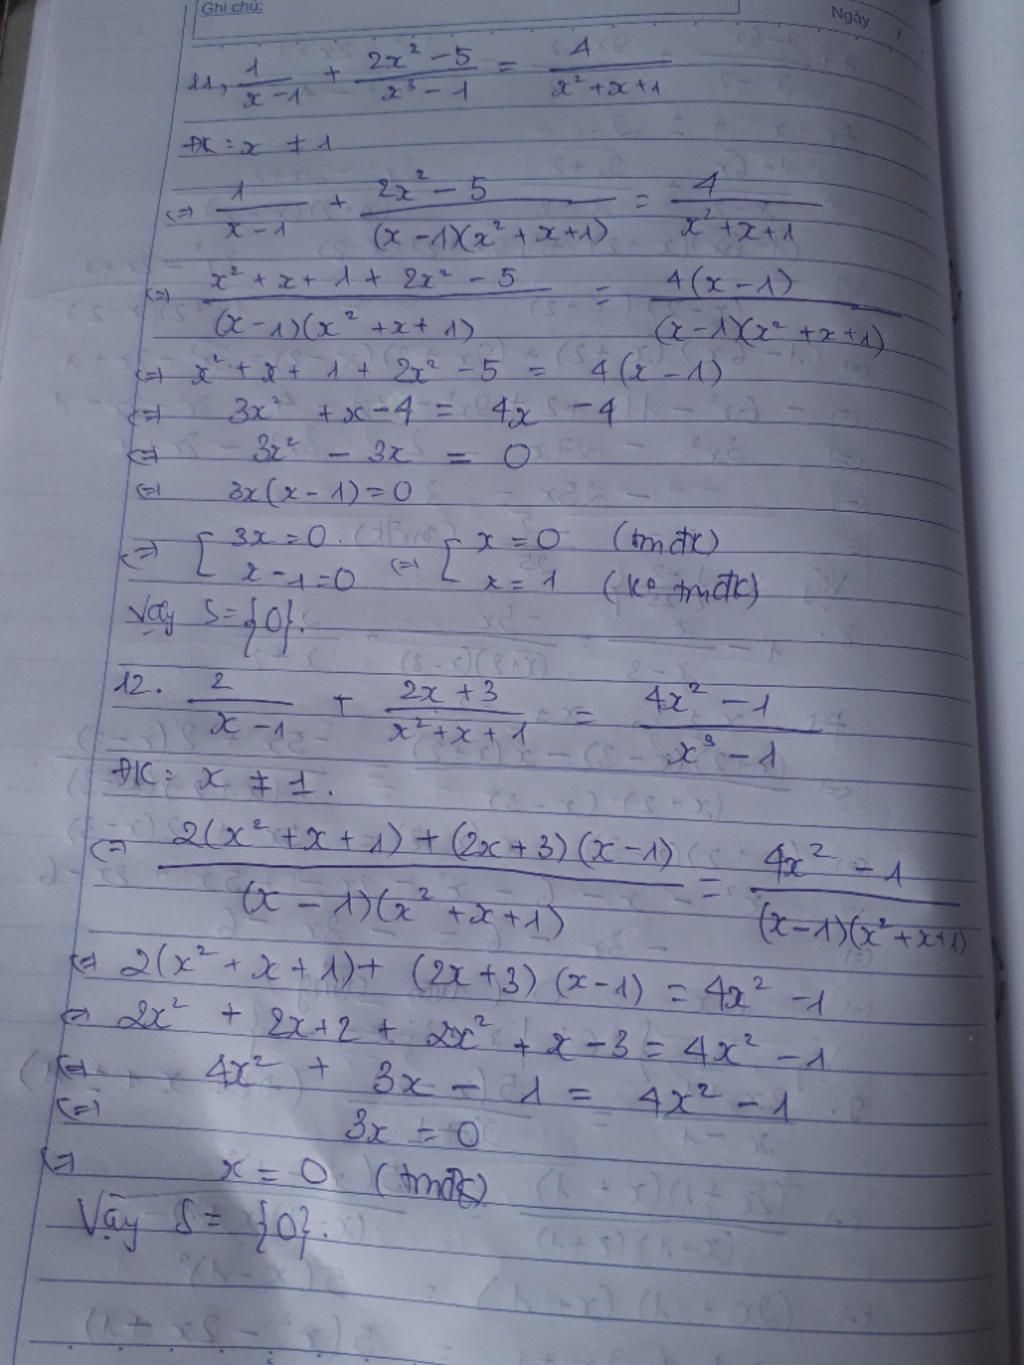 Ghi chú:
Ngày
11, 1/(x-1) + (2x² - 5)/(x³ - 1) = 4/(x² + x + 1)
ĐK: x ≠ 1
<=> 1/(x-1) + (2x² - 5)/((x-1)(x² + x + 1)) = 4/(x² + x + 1)
<=> (x² + x + 1 + 2x² - 5)/((x-1)(x² + x + 1)) = 4(x-1)/((x-1)(x² + x + 1))
<=> x² + x + 1 + 2x² - 5 = 4(x-1)
<=> 3x² + x - 4 = 4x - 4
<=> 3x² - 3x = 0
<=> 3x(x-1) = 0
<=> [ 3x = 0 <=> [ x = 0 (tmđk)
x - 1 = 0 x = 1 (ko tmđk)
Vậy S = {0}.
12. 2/(x-1) + (2x + 3)/(x² + x + 1) = (4x² - 1)/(x³ - 1)
ĐK: x ≠ 1.
<=> (2(x² + x + 1) + (2x + 3)(x-1))/((x-1)(x² + x + 1)) = (4x² - 1)/((x-1)(x² + x + 1))
<=> 2(x² + x + 1) + (2x + 3)(x-1) = 4x² - 1
<=> 2x² + 2x + 2 + 2x² + x - 3 = 4x² - 1
<=> 4x² + 3x - 1 = 4x² - 1
<=> 3x = 0
<=> x = 0 (tmđk)
Vậy S = {0}.